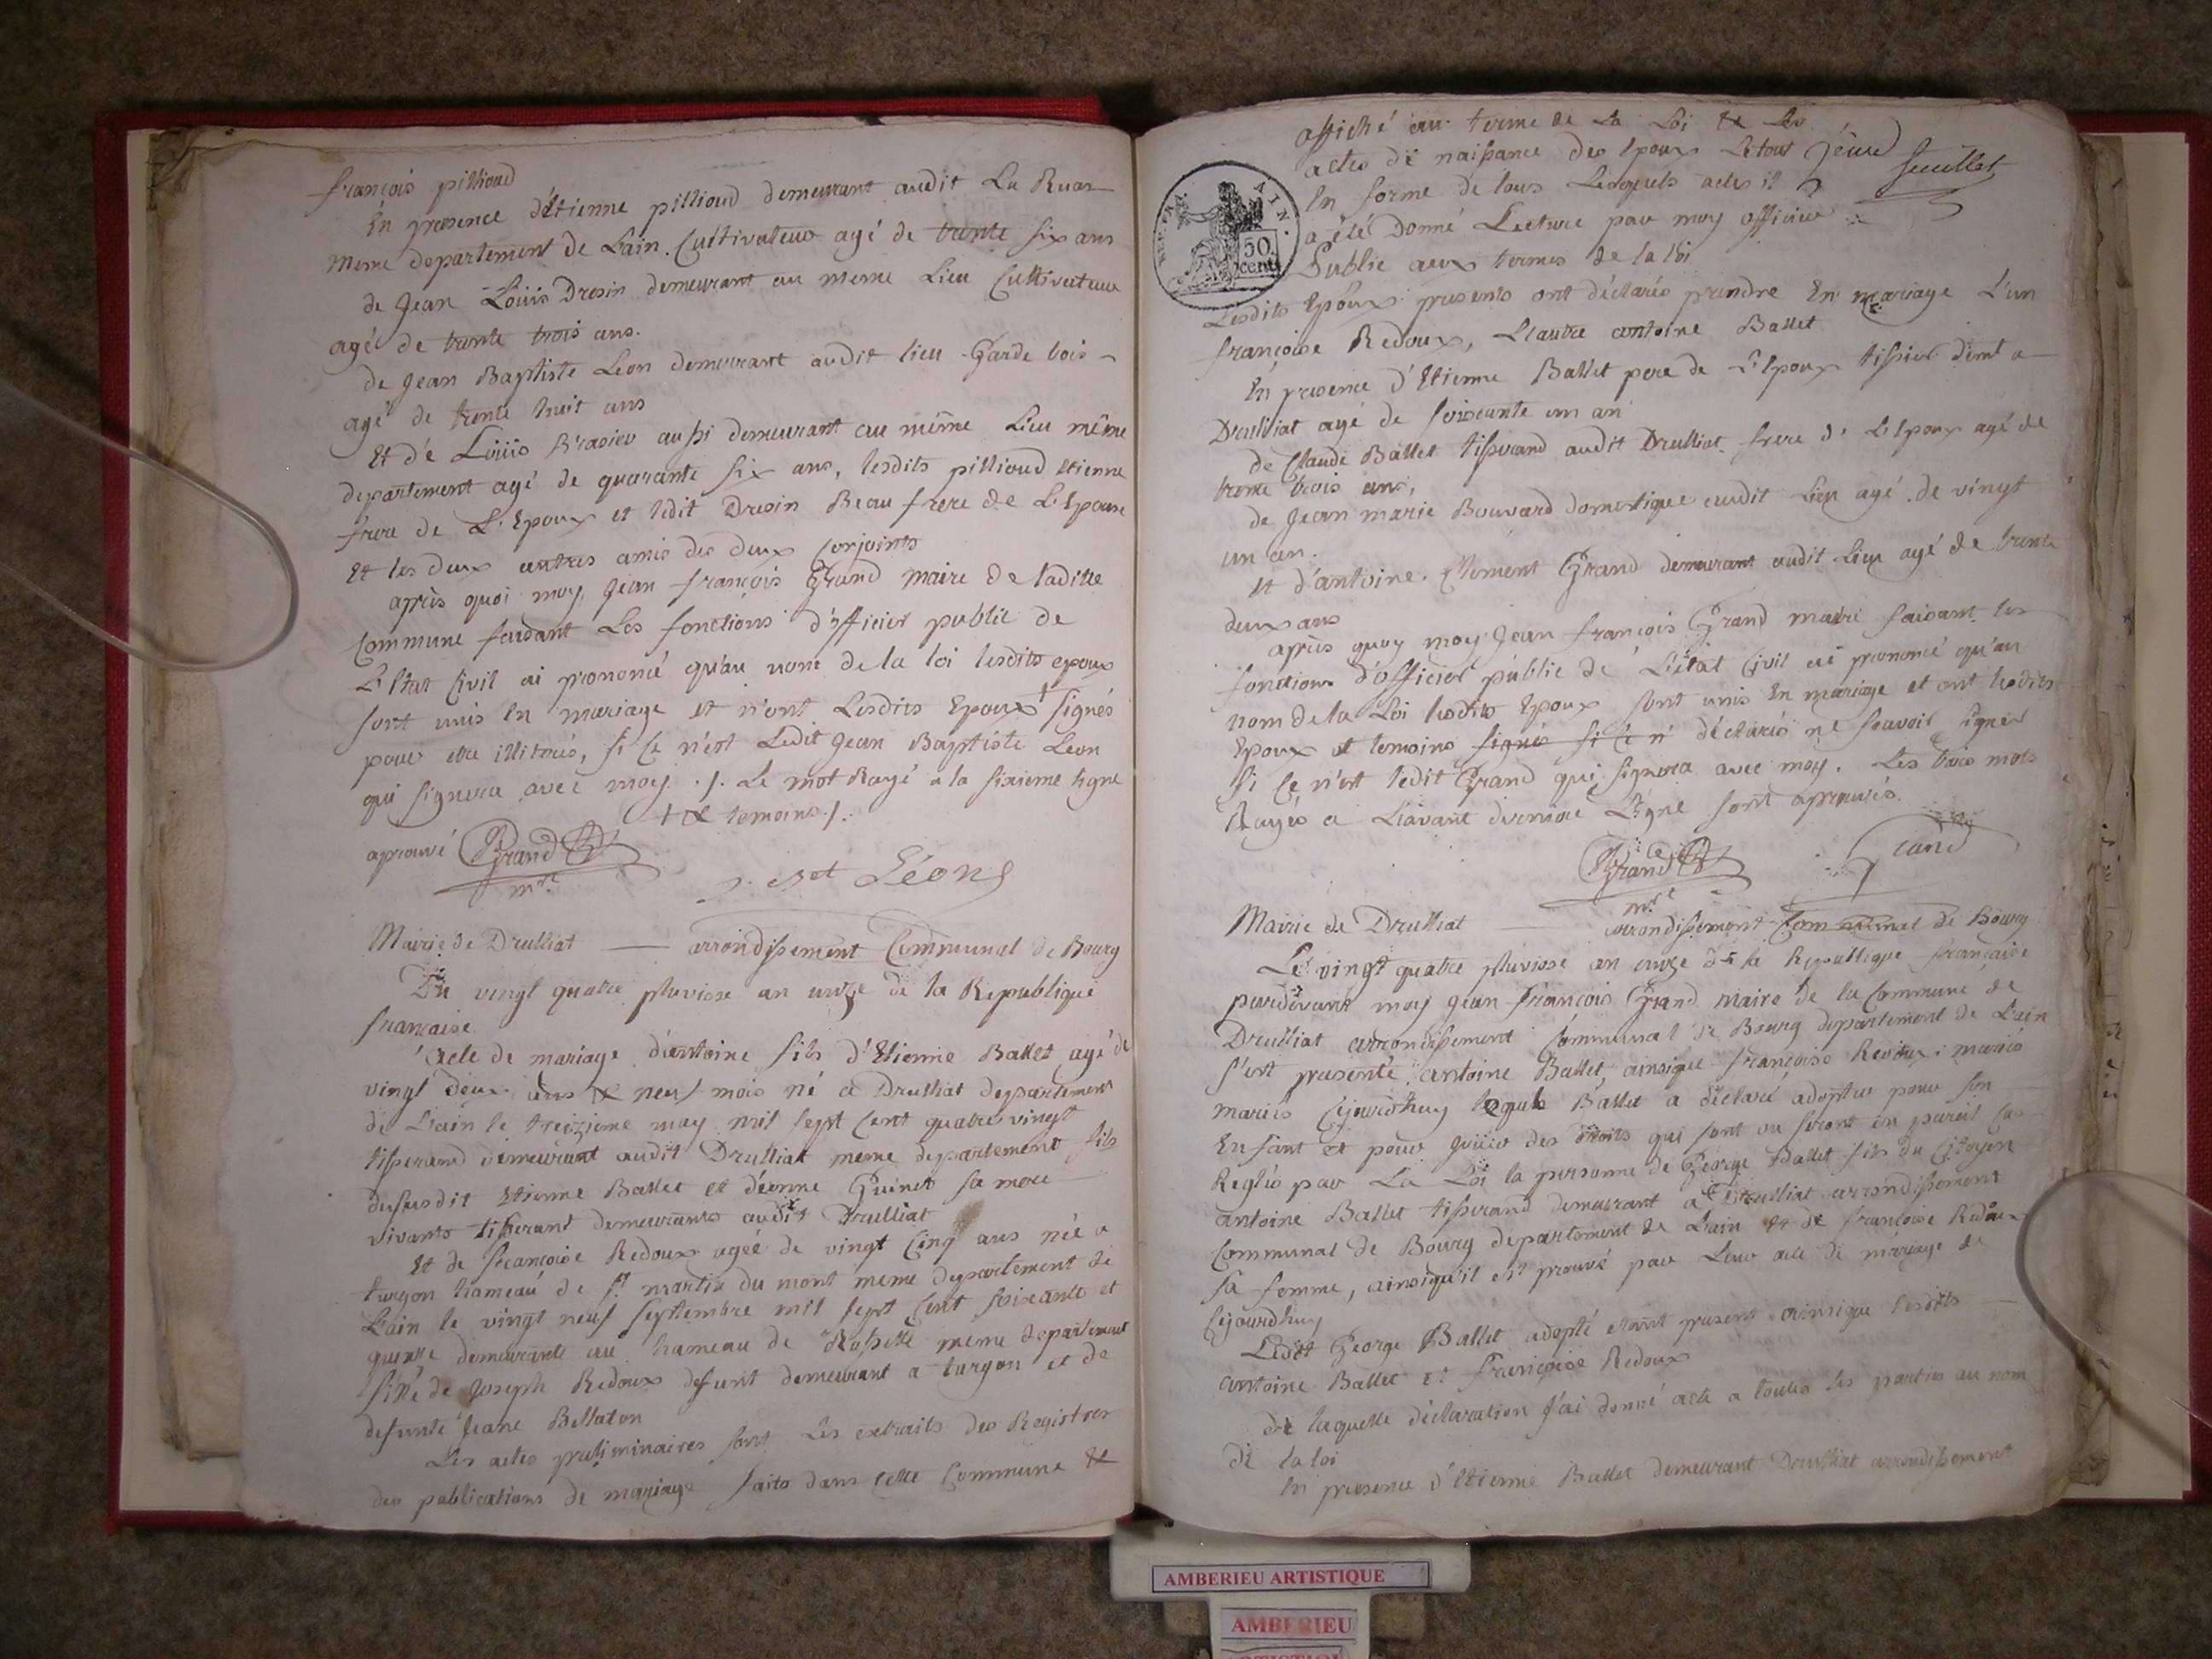 françois pillioud
En presence d'Etienne pillioud demeurant audit La Ruas
meme departement de L'ain. Cultivateur agé de trente six ans
de Jean Louis Dresin demeurant au meme Lieu Cultivateur
agé de trente trois ans.
de Jean Baptiste Leon demeurant audit lieu Garde bois
agé de trente huit ans
Et dé Louis Brasier aussi demeurant au même Lieu même
departement agé de quarante six ans, lesdits pillioud Etienne
frere de L'Epoux et ledit Dresin Beau frere de L'Epouse
Et les deux autres amis des deux Conjoints
après quoi moy Jean françois Grand maire de laditte
Commune faisant Les fonctions d'officier public de
L'Etat Civil ai prononcé qu'au nom de la loi lesdits epoux
sont unis En mariage et n'ont Lesdits Epoux + signés
pour etre illitrés, si ce n'est Ledit Jean Baptiste Leon
qui signera avec moy ./. Le mot Rayé a la sixieme ligne
+ & temoins ./.
aprouvé Grand
mre
J. Bat Léon
Mairie de Drulliat — arrondissement Communal de Bourg
Du vingt quatre pluviose an onze de la Republique
francaise
Acte de mariage d'antoine fils d'Etienne Ballet agé de
vingt deux ans & neuf mois né a Drulliat departement
de L'ain le treizieme may mil sept Cent quatre vingt
tisserand demeurant audit Drulliat meme departement fils
dususdit Etienne Ballet et d'eonne Guinet sa mere
vivants tisserant demeurants audit Drulliat
Et de françoise Redoux agée de vingt Cinq ans née a
turgon hameau de st martin du mont meme departement de
L'ain le vingt neuf septembre mil sept Cent soixante et
quinze demeurante au hameau de Rossette meme departement
fille de Joseph Redoux defunt demeurant a turgon et de
defunte Jeane Bellaton
Les actes preliminaires sont Les extraits des Registres
des publications de mariage faits dans cette Commune &
affiché au terme de La Loi & Les
actes de naissance des Epoux Le tout
En forme de tous Lesquels actes il
a été Donné Lecture par moy officier
Public aux termes de la loi
7éme feuillet
REP. FRA. AIN.
50 cent
Lesdits Epoux presents ont déclarés prendre En mariage L'un
françoise Redoux, L'autre antoine Ballet
En presence d'Etienne Ballet pere de L'Epoux tissier demt a
Drulliat agé de soixante un an
de Claude Ballet tisserand audit Drulliat frere de L'Epoux agé de
trente trois ans,
de Jean marie Bouvard domestique audit Lieu agé de vingt
un an.
et d'antoine Clement Grand demeurant audit Lieu agé de trente
deux ans
après quoy moy Jean françois Grand maire faisant les
fonctions d'officier public de L'état Civil ai prononcé qu'au
nom de la Loi lesdits Epoux sont unis En mariage et ont lesdits
Epoux et temoins signés si ce n' déclarés ne sçavoir signer
si ce n'est ledit Grand qui signera avec moy. Les trois mots
Rayés a L'avant derniere Ligne sont aprouvés.
Grand
mre
Grand
Mairie de Drulliat — arrondissement Communal de Bourg
Le vingt quatre pluviose an onze de la Republique françaice
pardevant moy Jean françois Grand maire de la Commune de
Drulliat arrondissement Communal de Bourg departement de L'ain
s'est presenté antoine Ballet ainsique françoise Redoux mariés
mariés Cejourdhuy lequels Ballet a déclaré adopter pour son
Enfant et pour Jouir des droits qui sont ou seront en pareil Cas
Reglés par La Loi la personne de George Ballet fils du Citoyen
antoine Ballet tisserand demeurant a Drulliat arrondissement
Communal de Bourg departement de L'ain et de francoise Redoux
sa femme, ainsiqu'il est prouvé par Leur acte de mariage de
Cejourdhuy
Ledit George Ballet adopté etant present ainsique lesdits
antoine Ballet et françoise Redoux
de laquelle déclaration J'ai donné acte a toutes les parties au nom
de la loi
En presence d'Etienne Ballet demeurant Drulliat arrondissement
AMBERIEU ARTISTIQUE
AMBERIEU
ARTISTIQUE